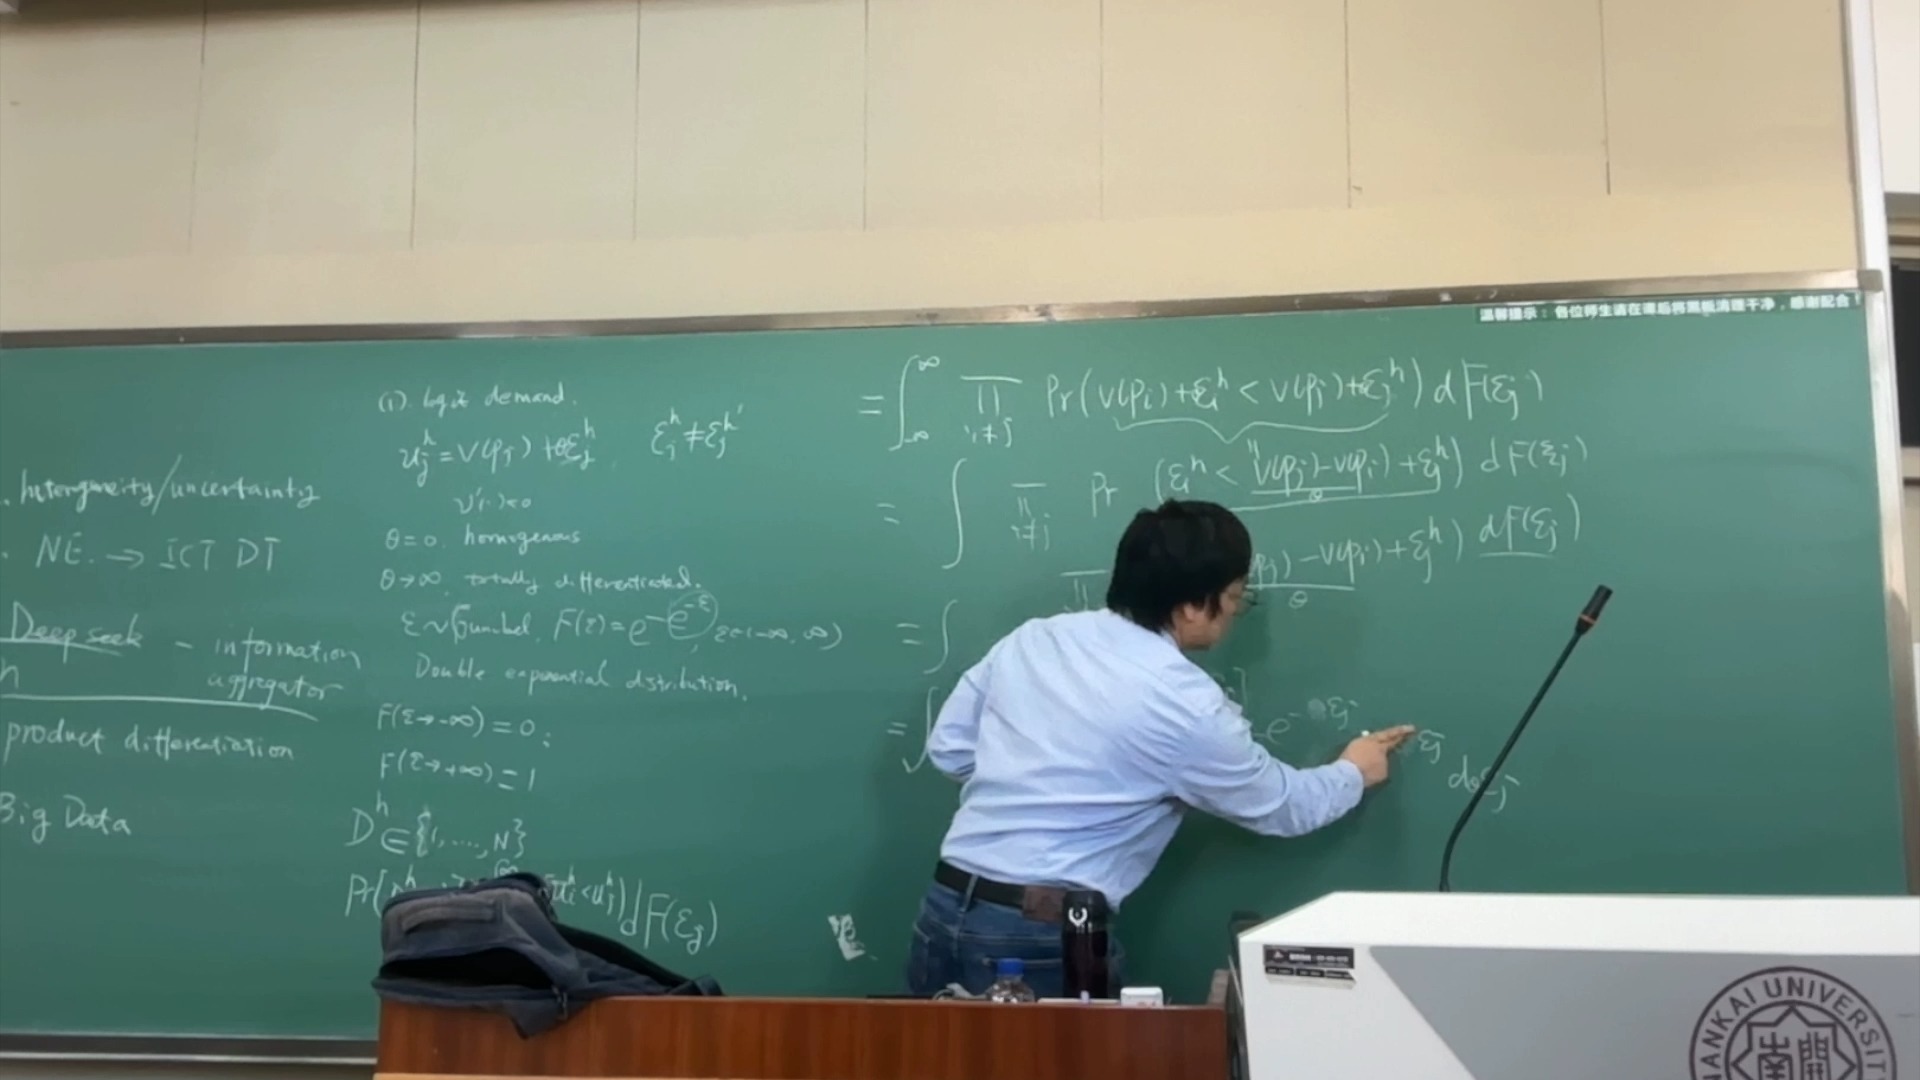 温馨提示：各位师生请在课后将黑板清理干净，感谢配合！
. heterogeneity/uncertainty
. NE. → ICT DT
Deep seek - information
aggregator
n
product differentiation
Big Data
(1). logit demand.
u_j^h = V(p_j) + θε_j^h, ε_j^h ≠ ε_j^h'
v'(·)<0
θ=0. homogenous
θ→∞, totally differentiated.
ε~Gumbel, F(ε)=e^{-e^{-ε}}, ε∈(-∞, ∞)
Double exponential distribution.
F(ε→-∞)=0;
F(ε→+∞)=1
D^h ∈{1,...., N}
Pr( u_i^h<u_j^h) dF(ε_j)
= ∫_{-∞}^{∞} Π_{i≠j} Pr(V(p_i)+θε_i^h < V(p_j)+θε_j^h) dF(ε_j)
= ∫ Π_{i≠j} Pr (ε_i^h < (V(p_j)-V(p_i))/θ + ε_j^h) dF(ε_j)
= ∫ Π (p_j)-V(p_i))/θ + ε_j^h) dF(ε_j)
= ∫ e^- ε_j ε_j dθε_j
NANKAI UNIVERSITY
南開